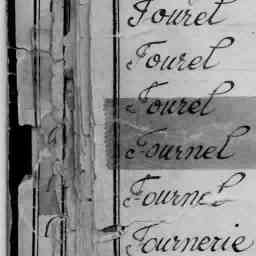 Fourel
Fourel
Fourel
Fournel
Fournel
Fournerie